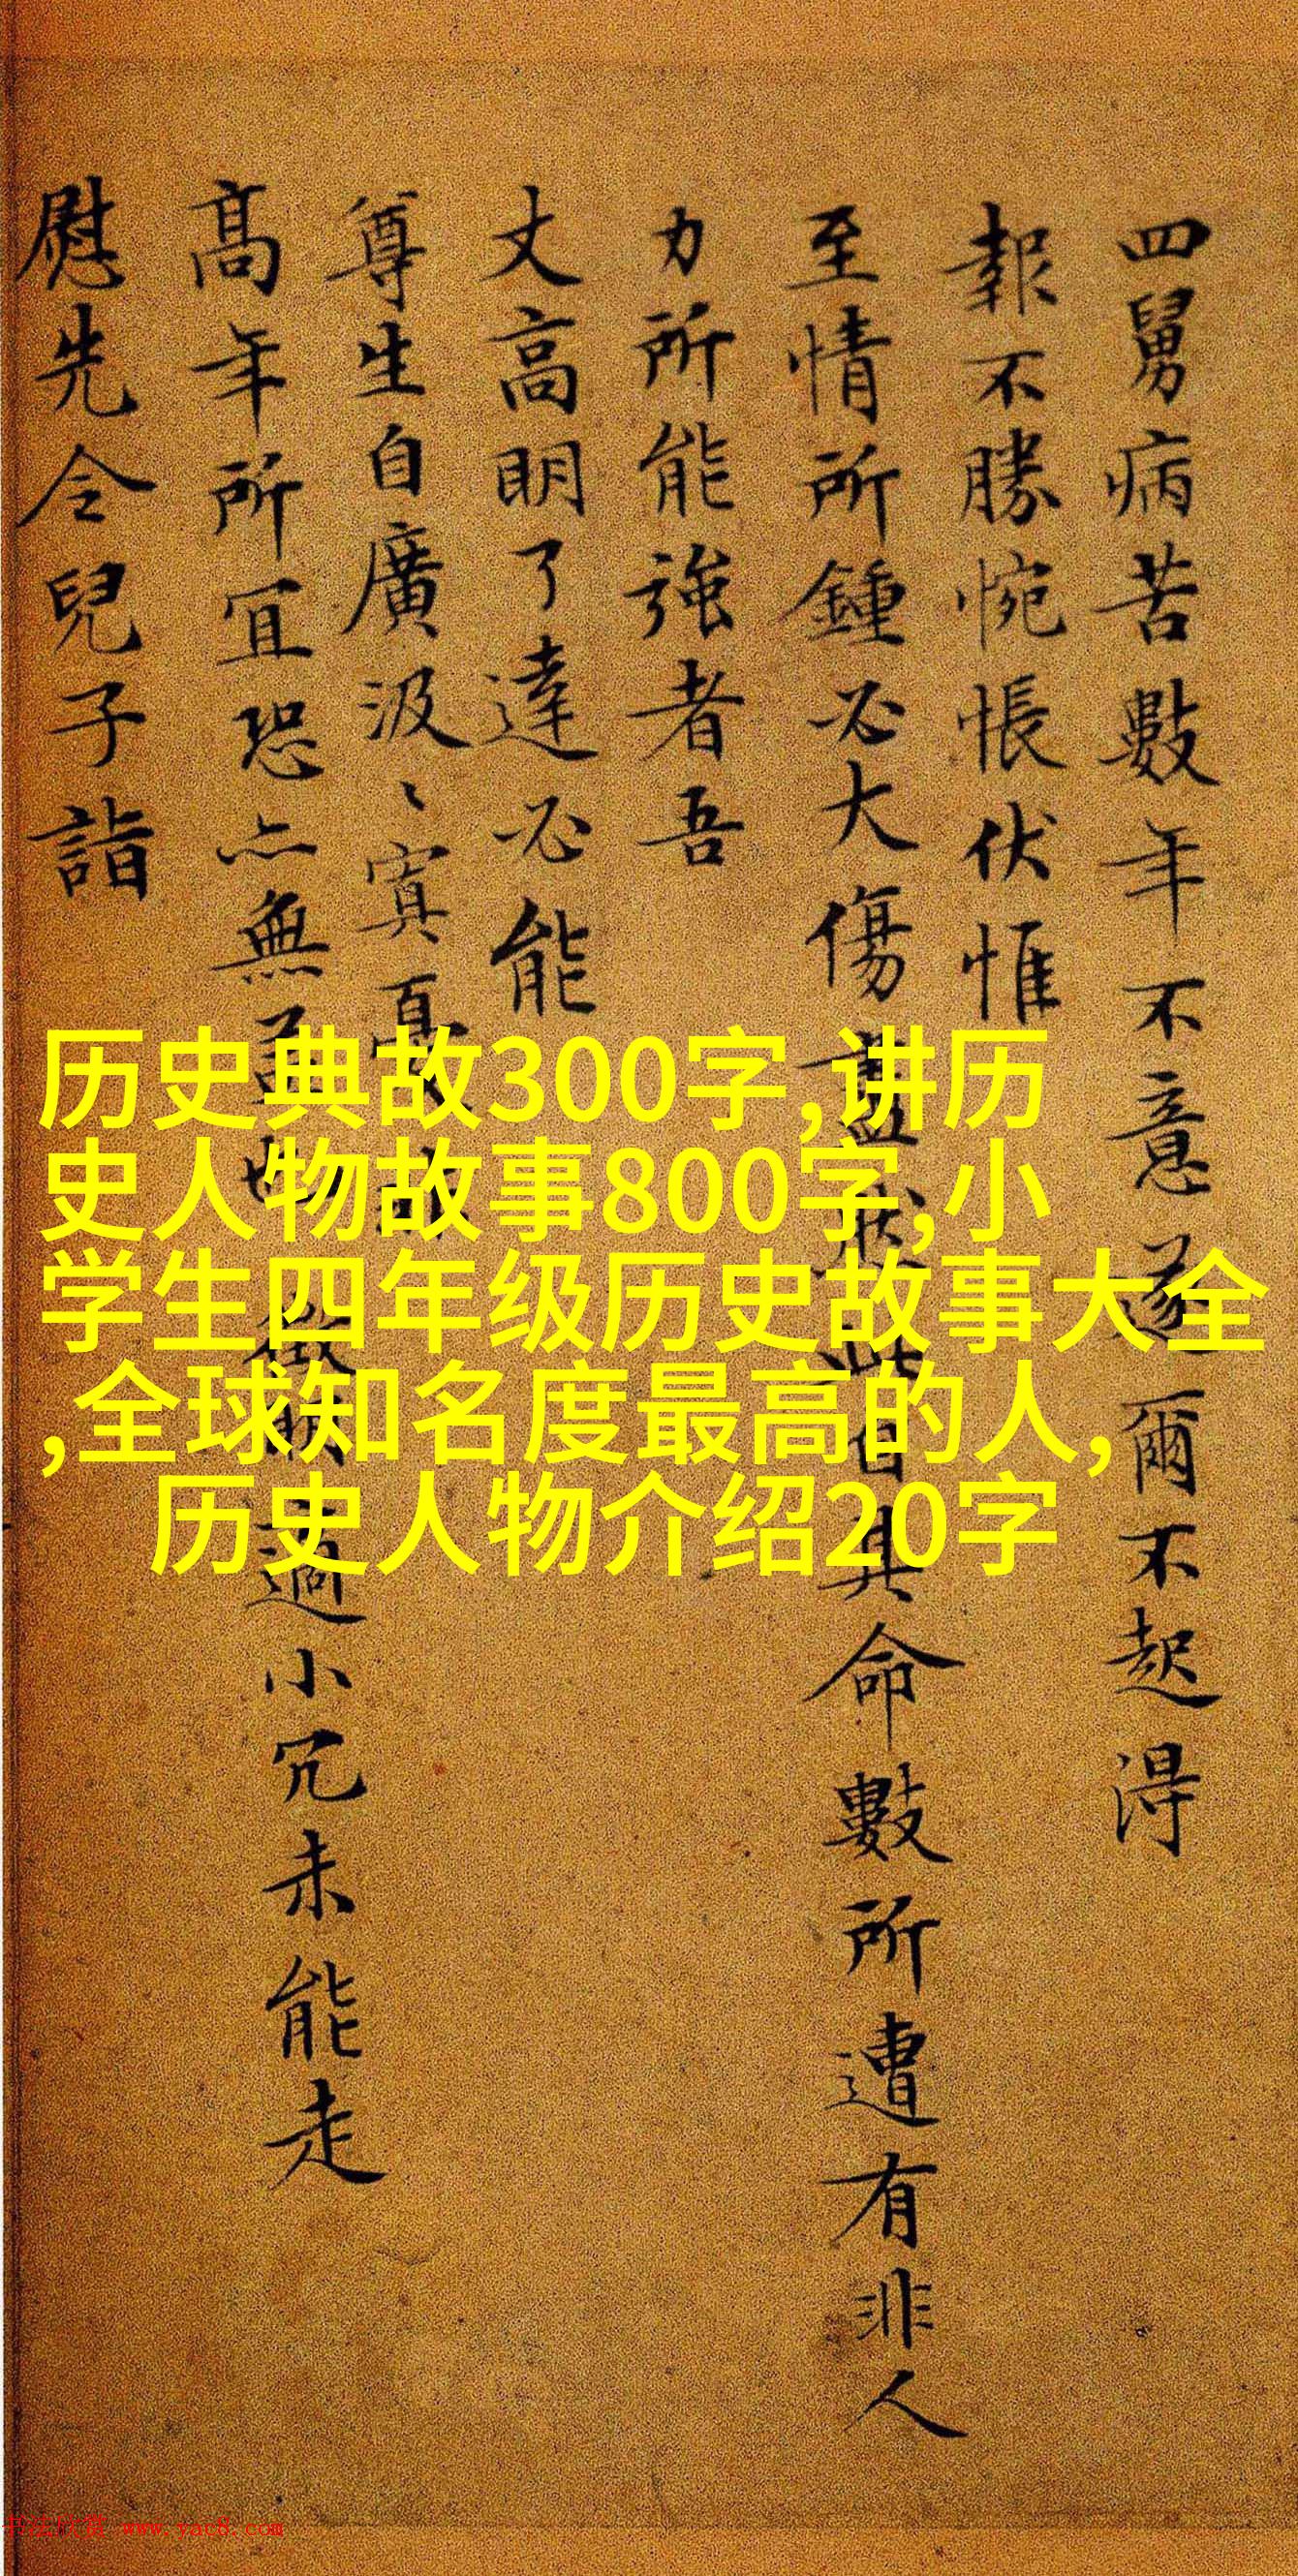 四舅病苦數年不意遂爾不起得
報不勝惋悵伏惟
至情所鍾必大傷盡然此自其命數所遭有非人
力所能強者吾
丈高明了達必能
尊生自廣汲〻寘憂
高年所宜恐亦無益也
過小冗未能走
慰先令兒子詣
历史典故300字,讲历
史人物故事800字,小
学生四年级历史故事大全
,全球知名度最高的人,
历史人物介绍20字
书法欣赏 www.yac8.com